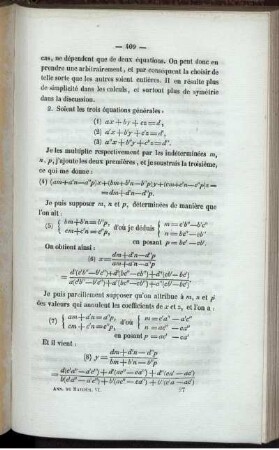 — 409 —
cas, ne dépendent que de deux équations. On peut donc en
prendre une arbitrairement, et par conséquent la choisir de
telle sorte que les autres soient entières. Il en résulte plus
de simplicité dans les calculs, et surtout plus de symétrie
dans la discussion.
2. Soient les trois équations générales:
(1) ax+by+cz=d,
(2) a'x+b'y+c'z=d',
(3) a''x+b''y+c''z=d''.
Je les multiplie respectivement par les indéterminées m,
n, p, j'ajoute les deux premières, et je soustrais la troisième,
ce qui me donne:
(4) (am+a'n—a''p)x+(bm+b'n—b''p)y+(cm+c'n—c''p)z=
=dm+d'n—d''p.
Je puis supposer m, n et p, déterminées de manière que
l'on ait :
(5) { bm+b'n=b''p, cm+c'n=c''p, d'où je déduis { m=c'b''—b'c'' n=bc''—cb''
en posant p=bc'—cb'.
On obtient ainsi :
(6) x= dm+d'n—d''p / am+a'n—a''p =
Je puis pareillement supposer qu'on attribue à m, n et p
des valeurs qui annulent les coefficients de x et z, et l'on a :
(7) { am+a'n=a''p, cm+c'n=c''p, d'où { m=c'a''—a'c'' n=ac''—ca''
en posant p=ac'—ca'
Et il vient :
(8) y= dm+d'n—d''p / bm+b'n—b''p =
27